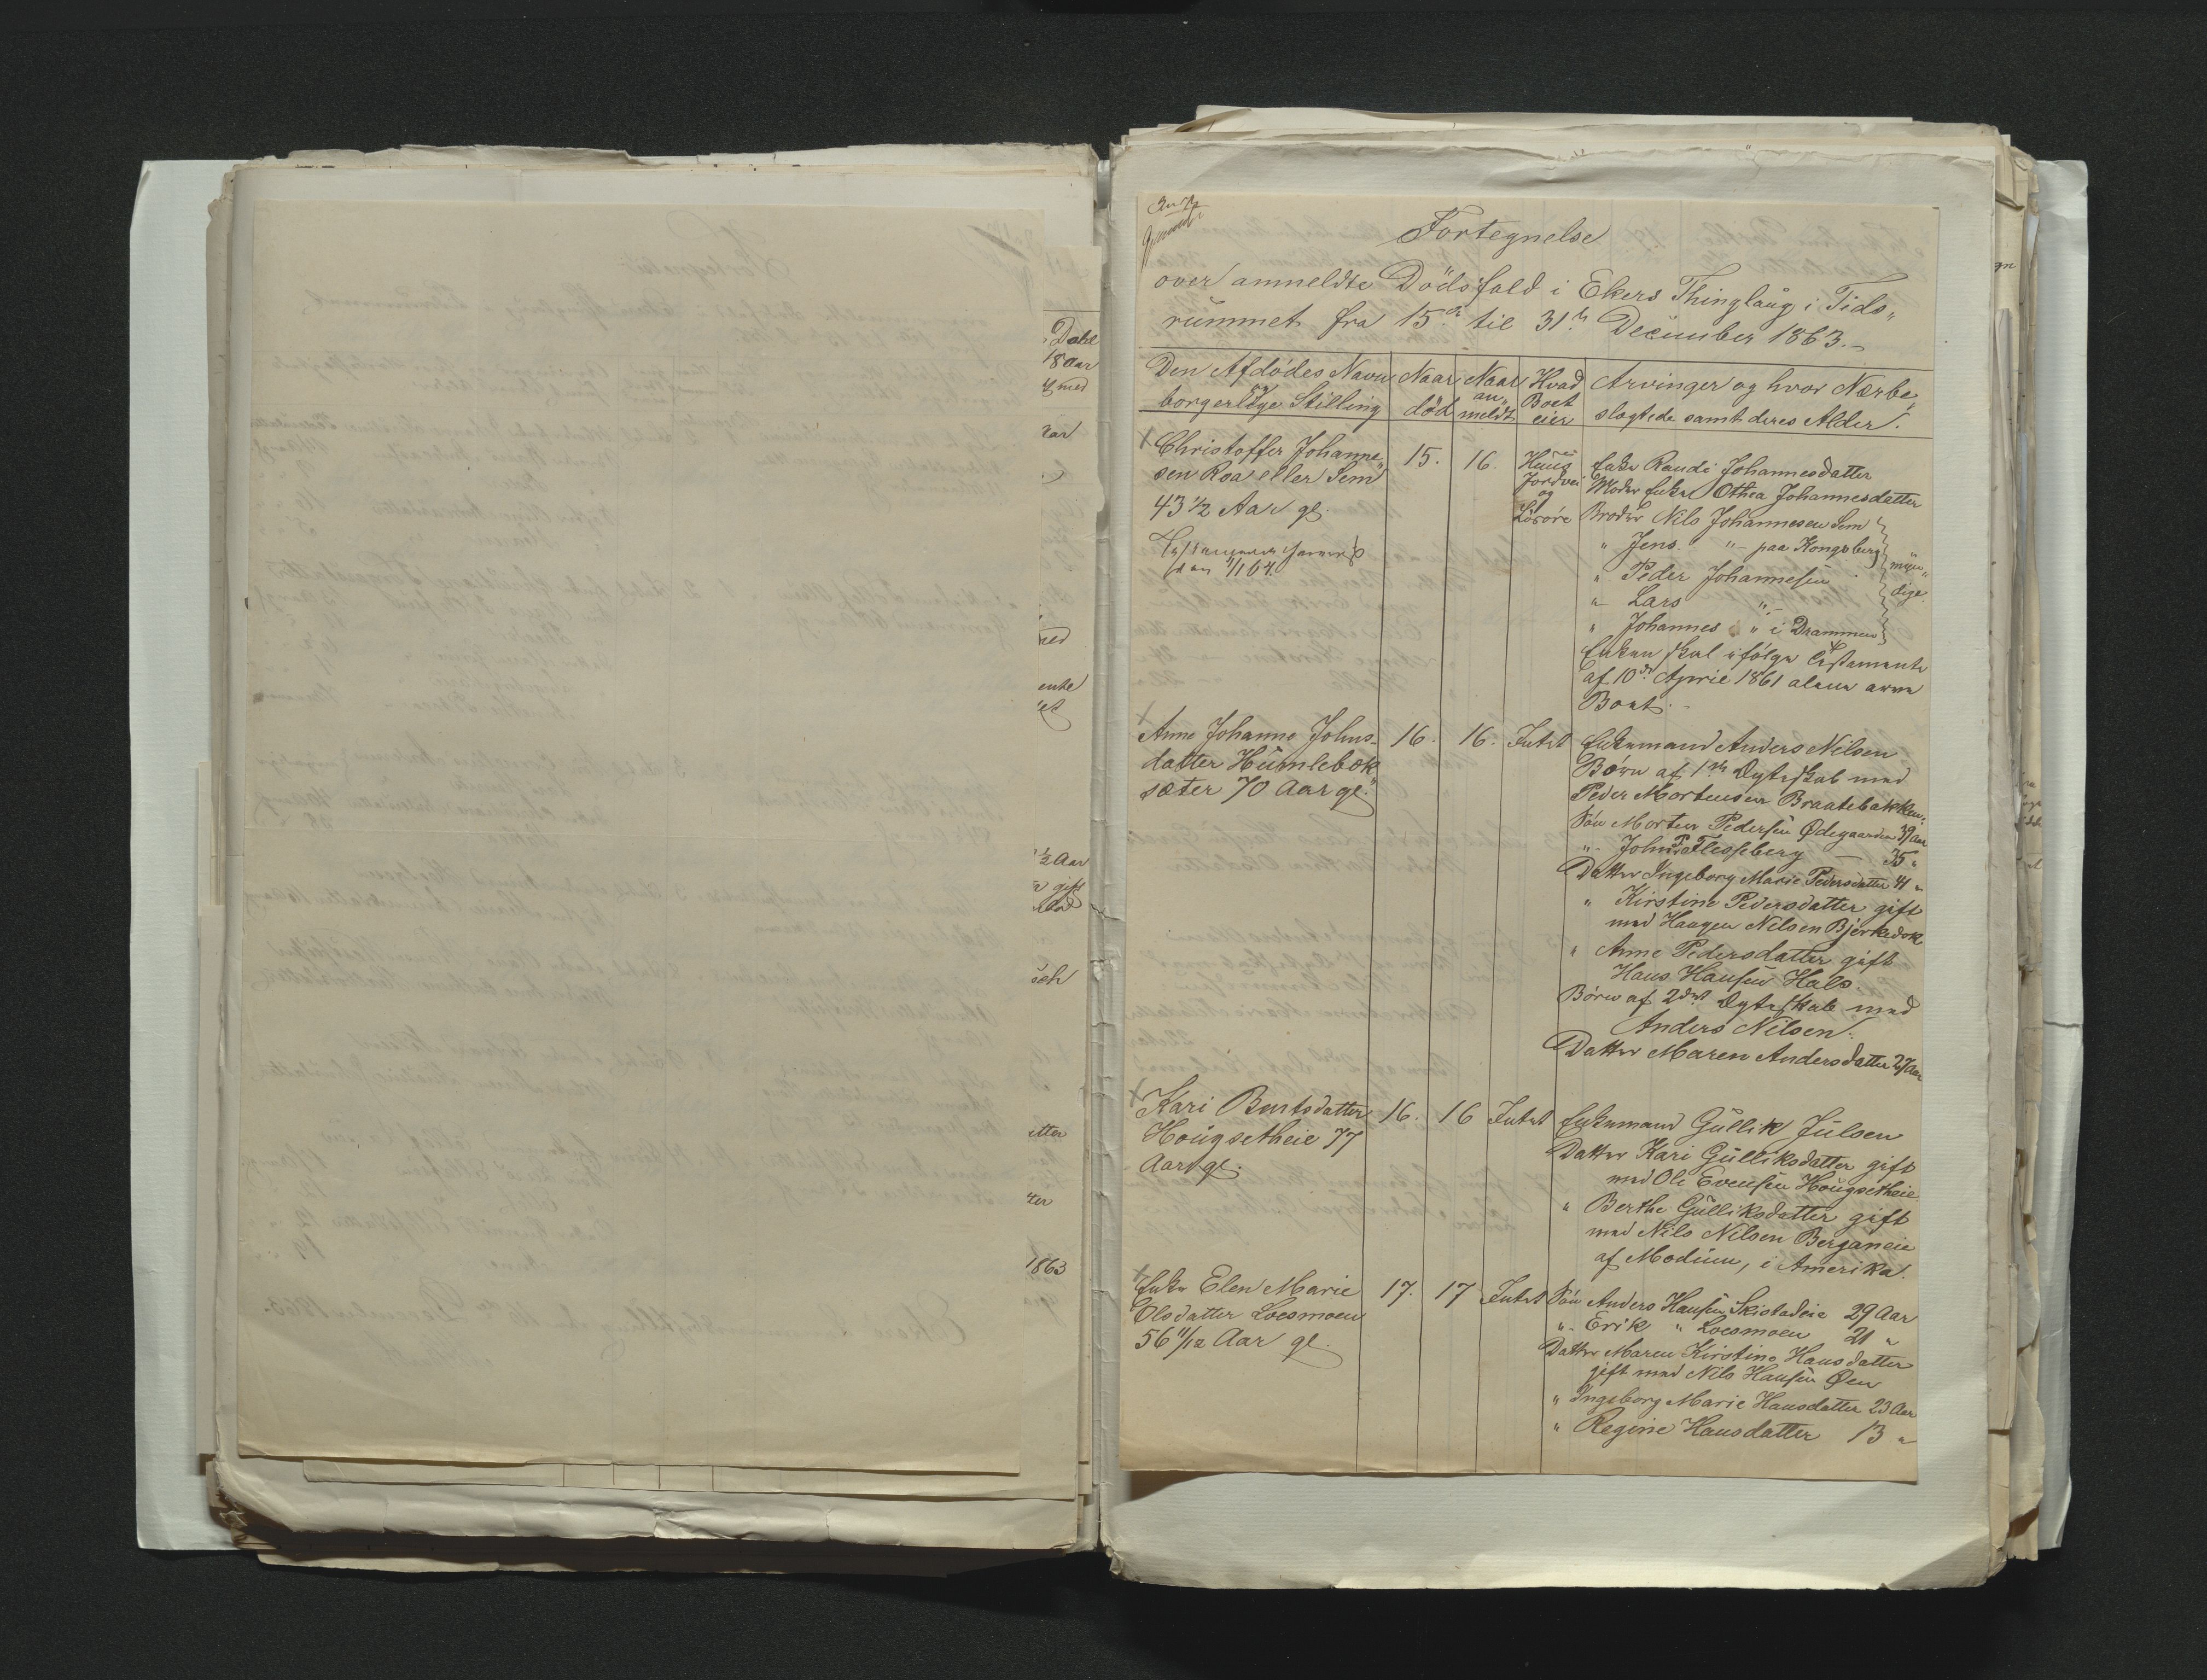 Dahl
18 Aar
med
ente
½ Aar
gift
1863
Fortegnelse
over anmeldte Dödsfald i Ekers Thinglaug i Tids„
rummet fra 15de til 31te December 1863.–
Den Afdödes Navn og borgerlige Stilling | Naar död | Naar an„meldt | Hvad Boet eier | Arvinger og hvor Nærbe„slægtede samt deres Alder.
Christoffer Johanne„ 15. 16. Huus Enke Randi Johannesdatter
sen Roa eller Sem Jordvei Moder Enke Othea Johannesdatter
43½ Aar gl. og Løsøre Broder Nils Johannesen Sem
„ Jens „ – paa Kongsberg myn„
„ Peder Johannesen dige
„ Lars „ –
„ Johannes „ i Drammen
Enken skal ifölge Testamente
af 10de April 1861 alene arve
Boet.
Anne Johanne Johns„ 16. 16. Intet Enkemand Anders Nilsen
datter Humlebæk„ Börn af 1ste Ægteskab med
sæter 70 Aar gl. Peder Mortensen Braatebakken:
Sön Morten Pedersen Ødegaarden 39 Aar
„ – John P. Flesseberg – 35 „
Datter Ingeborg Marie Pedersdatter 41 „
„ Kirstine Pedersdatter gift
med Haagen Nilsen Bjerkedok
„ Anne Pedersdatter gift
Hans Hansen Hals.
Börn af 2det Ægteskab med
Anders Nilsen:
Datter Maren Andersdatter 27 Aar
Kari Berntsdatter 16. 16 Intet Enkemand Gullik Julsen
Hougsetheie 77 Datter Kari Gulliksdatter gift
Aar gl. med Ole Evensen Hougsetheie
„ Berthe Gulliksdatter gift
med Nils Nilsen Berganeie
af Modum, i Amerika.
Enke Elen Marie 17. 17 Intet Sön Anders Hansen Skistadeie 29 Aar
Olsdatter Loesmoen „ – Erik „ Loesmoen 21 „
56 11/12 Aar gl. Datter Maren Kirstine Hansdatter
gift med Nils Hansen Øen
„ Ingeborg Marie Hansdatter 23 Aar
„ Regine Hansdatter 13 „